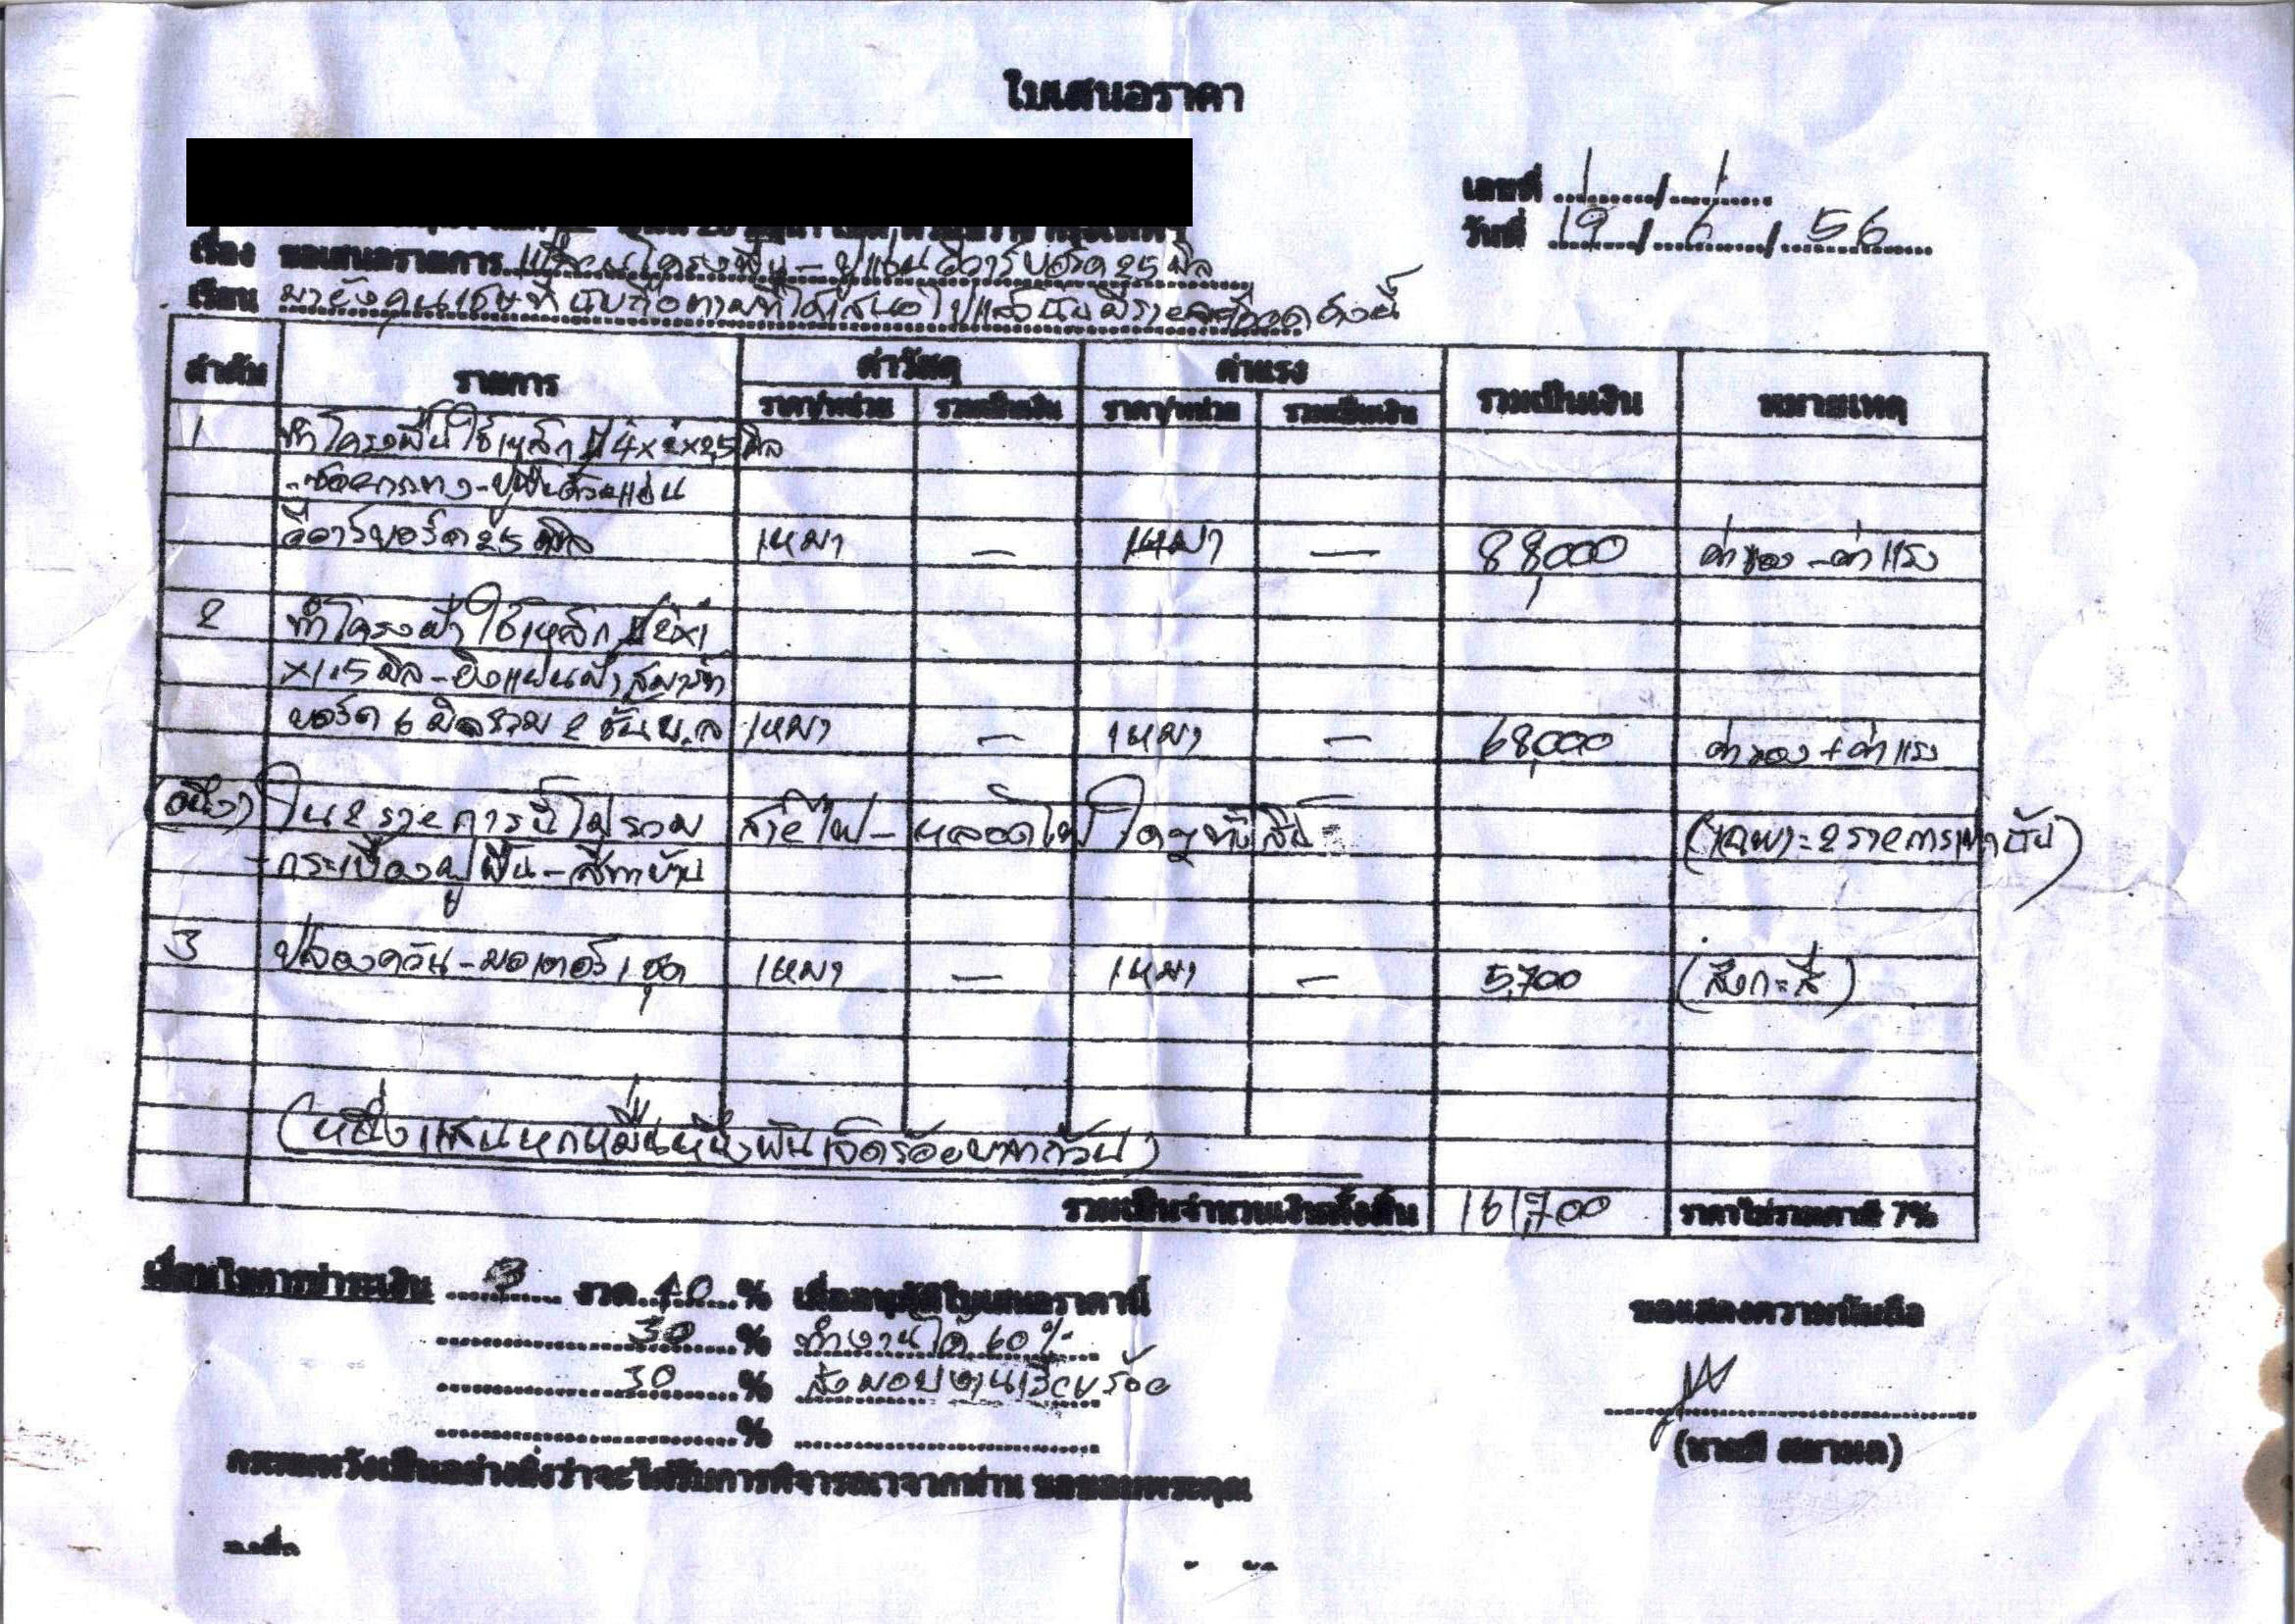 ใบเสนอราคา
เลขที่ 1 / 1
วันที่ 19 / 6 / 56
เรื่อง ขอเสนอรายการ เปลี่ยนโครงพื้น - ปูแผ่นวีว่าร์บอร์ด 25 มิล
เรียน มายังคุณ ที่นับถือตามที่ได้เสนอไปแล้วนั้นมีรายละเอียดดังนี้
ลำดับ รายการ ค่าวัสดุ ค่าแรง รวมเป็นเงิน หมายเหตุ
ราคา/หน่วย รวมเป็นเงิน ราคา/หน่วย รวมเป็นเงิน
1 ทำโครงพื้นใช้เหล็ก 4x2x2.5 มิล
-ซอยกลาง-ปูพื้นด้วยแผ่น
วีว่าร์บอร์ด 25 มิล เหมา — เหมา — 88,000 ค่าของ - ค่าแรง
2 ทำโครงฝ้าใช้เหล็ก 2x1
x1.5 มิล - ยิงแผ่นฝ้าสมาร์ท
บอร์ด 6 มิลรวม 2 ชั้น บ.ล เหมา — เหมา — 68,000 ค่าของ + ค่าแรง
(อนึ่ง) ใน 2 รายการนี้ไม่รวม สายไฟ - หลอดไฟ ใดๆทั้งสิ้น (เฉพาะ 2 รายการเท่านั้น)
- กระเบื้องปูพื้น - สีทาบ้าน
3 ปล่องควัน - มอเตอร์ 1 ชุด เหมา — เหมา — 5,700 (สังกะสี)
(หนึ่งแสนหกหมื่นหนึ่งพันเจ็ดร้อยบาทถ้วน)
รวมเป็นจำนวนเงินทั้งสิ้น 161,700 ราคาไม่รวมภาษี 7%
เงื่อนไขการชำระเงิน 3 งวด 40 % เมื่ออนุมัติใบเสนอราคานี้
30 % ทำงานได้ 60 %
30 % ส่งมอบงานเรียบร้อย
%
ขอแสดงความนับถือ
กระผมหวังเป็นอย่างยิ่งว่าจะได้รับการพิจารณาจากท่าน ขอขอบพระคุณ